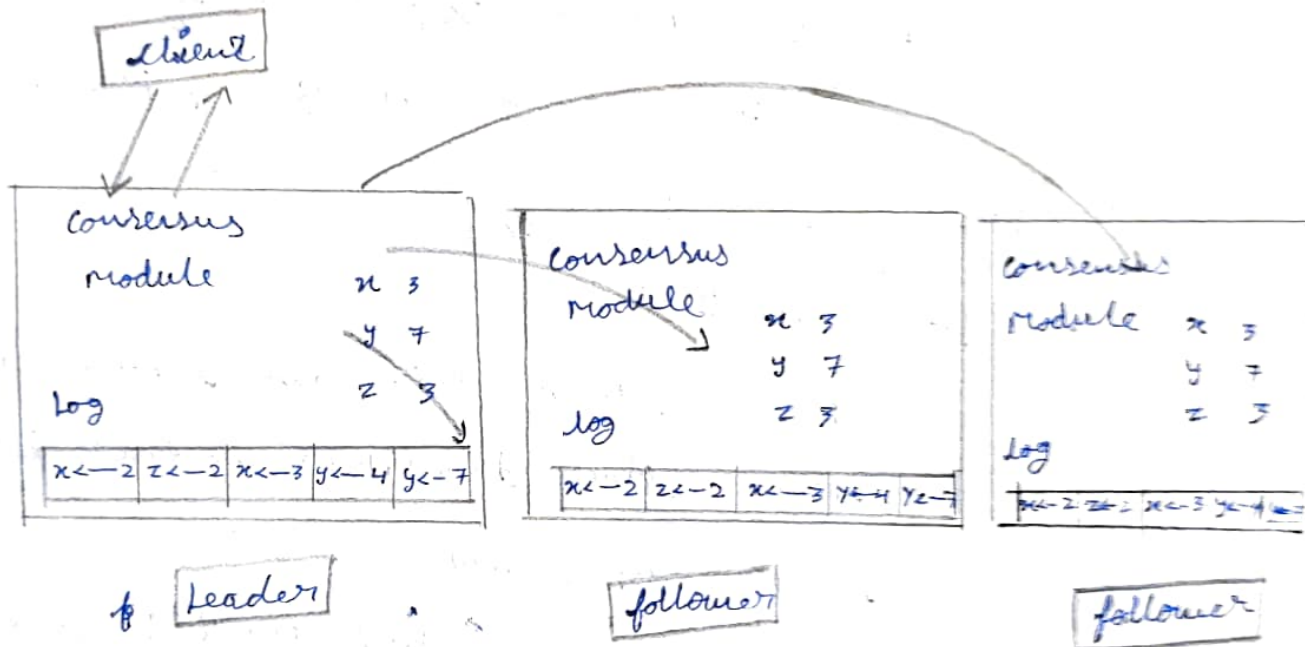 client
consensus
module
x 3
y 7
z 3
Log
x<-2 z<-2 x<-3 y<-4 y<-7
Leader
consensus
module
x 3
y 7
z 3
log
x<-2 z<-2 x<-3 y<-4 y<-7
follower
consensus
module
x 3
y 7
z 3
log
x<-2 x<-3
follower